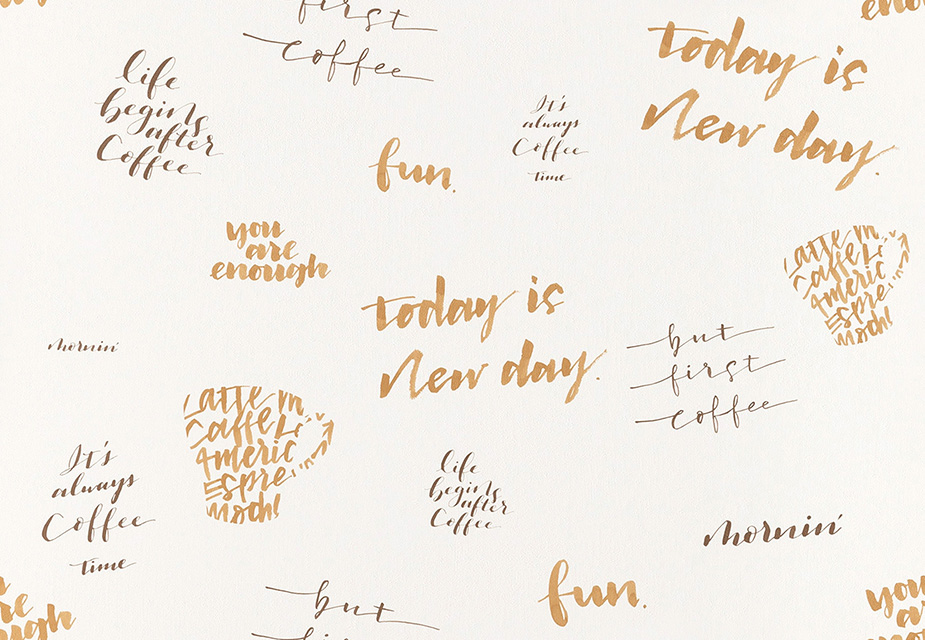 first
coffee
enough
today is
New day.
life
begins
after
Coffee
It's
always
Coffee
time
fun.
you
are
enough
Latte m
Caffe Li
Americ
Espre
Moch
today is
New day.
but
first
coffee
mornin'
Latte m
Caffe Li
Americ
Espre
Moch
It's
always
Coffee
time
life
begins
after
Coffee
mornin'
fun.
but
you